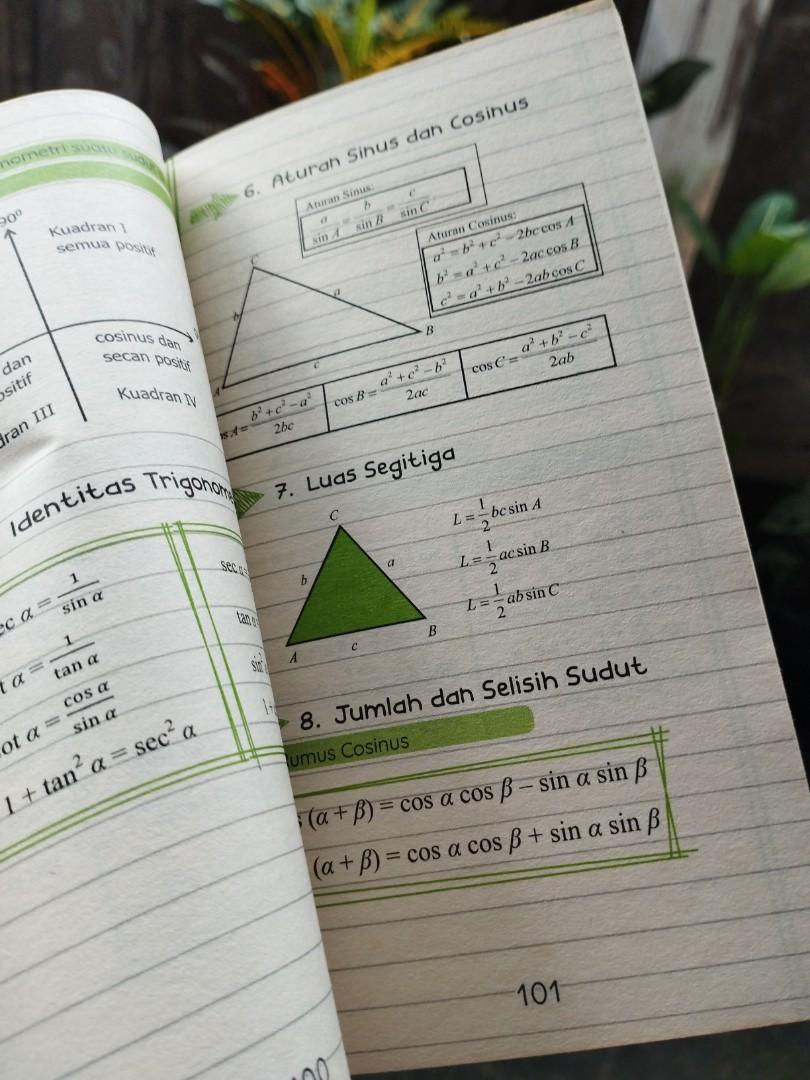 nometri suatu sudut
90°
Kuadran I
semua positif
cosinus dan
secan positif
Kuadran IV
dan
ositif
dran III
Identitas Trigonom
ec α = 1/sin α
t α = 1/tan α
ot α = cos α/sin α
1 + tan² α = sec² α
sec α =
tan α
sin²
1+
6. Aturan Sinus dan Cosinus
Aturan Sinus:
a/sin A = b/sin B = c/sin C
Aturan Cosinus:
a² = b² + c² − 2bc cos A
b² = a² + c² − 2ac cos B
c² = a² + b² − 2ab cos C
C
b
a
B
c
A
s A = b² + c² − a²/2bc
cos B = a² + c² − b²/2ac
cos C = a² + b² − c²/2ab
7. Luas Segitiga
C
b
a
A
c
B
L = 1/2 bc sin A
L = 1/2 ac sin B
L = 1/2 ab sin C
8. Jumlah dan Selisih Sudut
umus Cosinus
s (α + β) = cos α cos β − sin α sin β
(α + β) = cos α cos β + sin α sin β
101